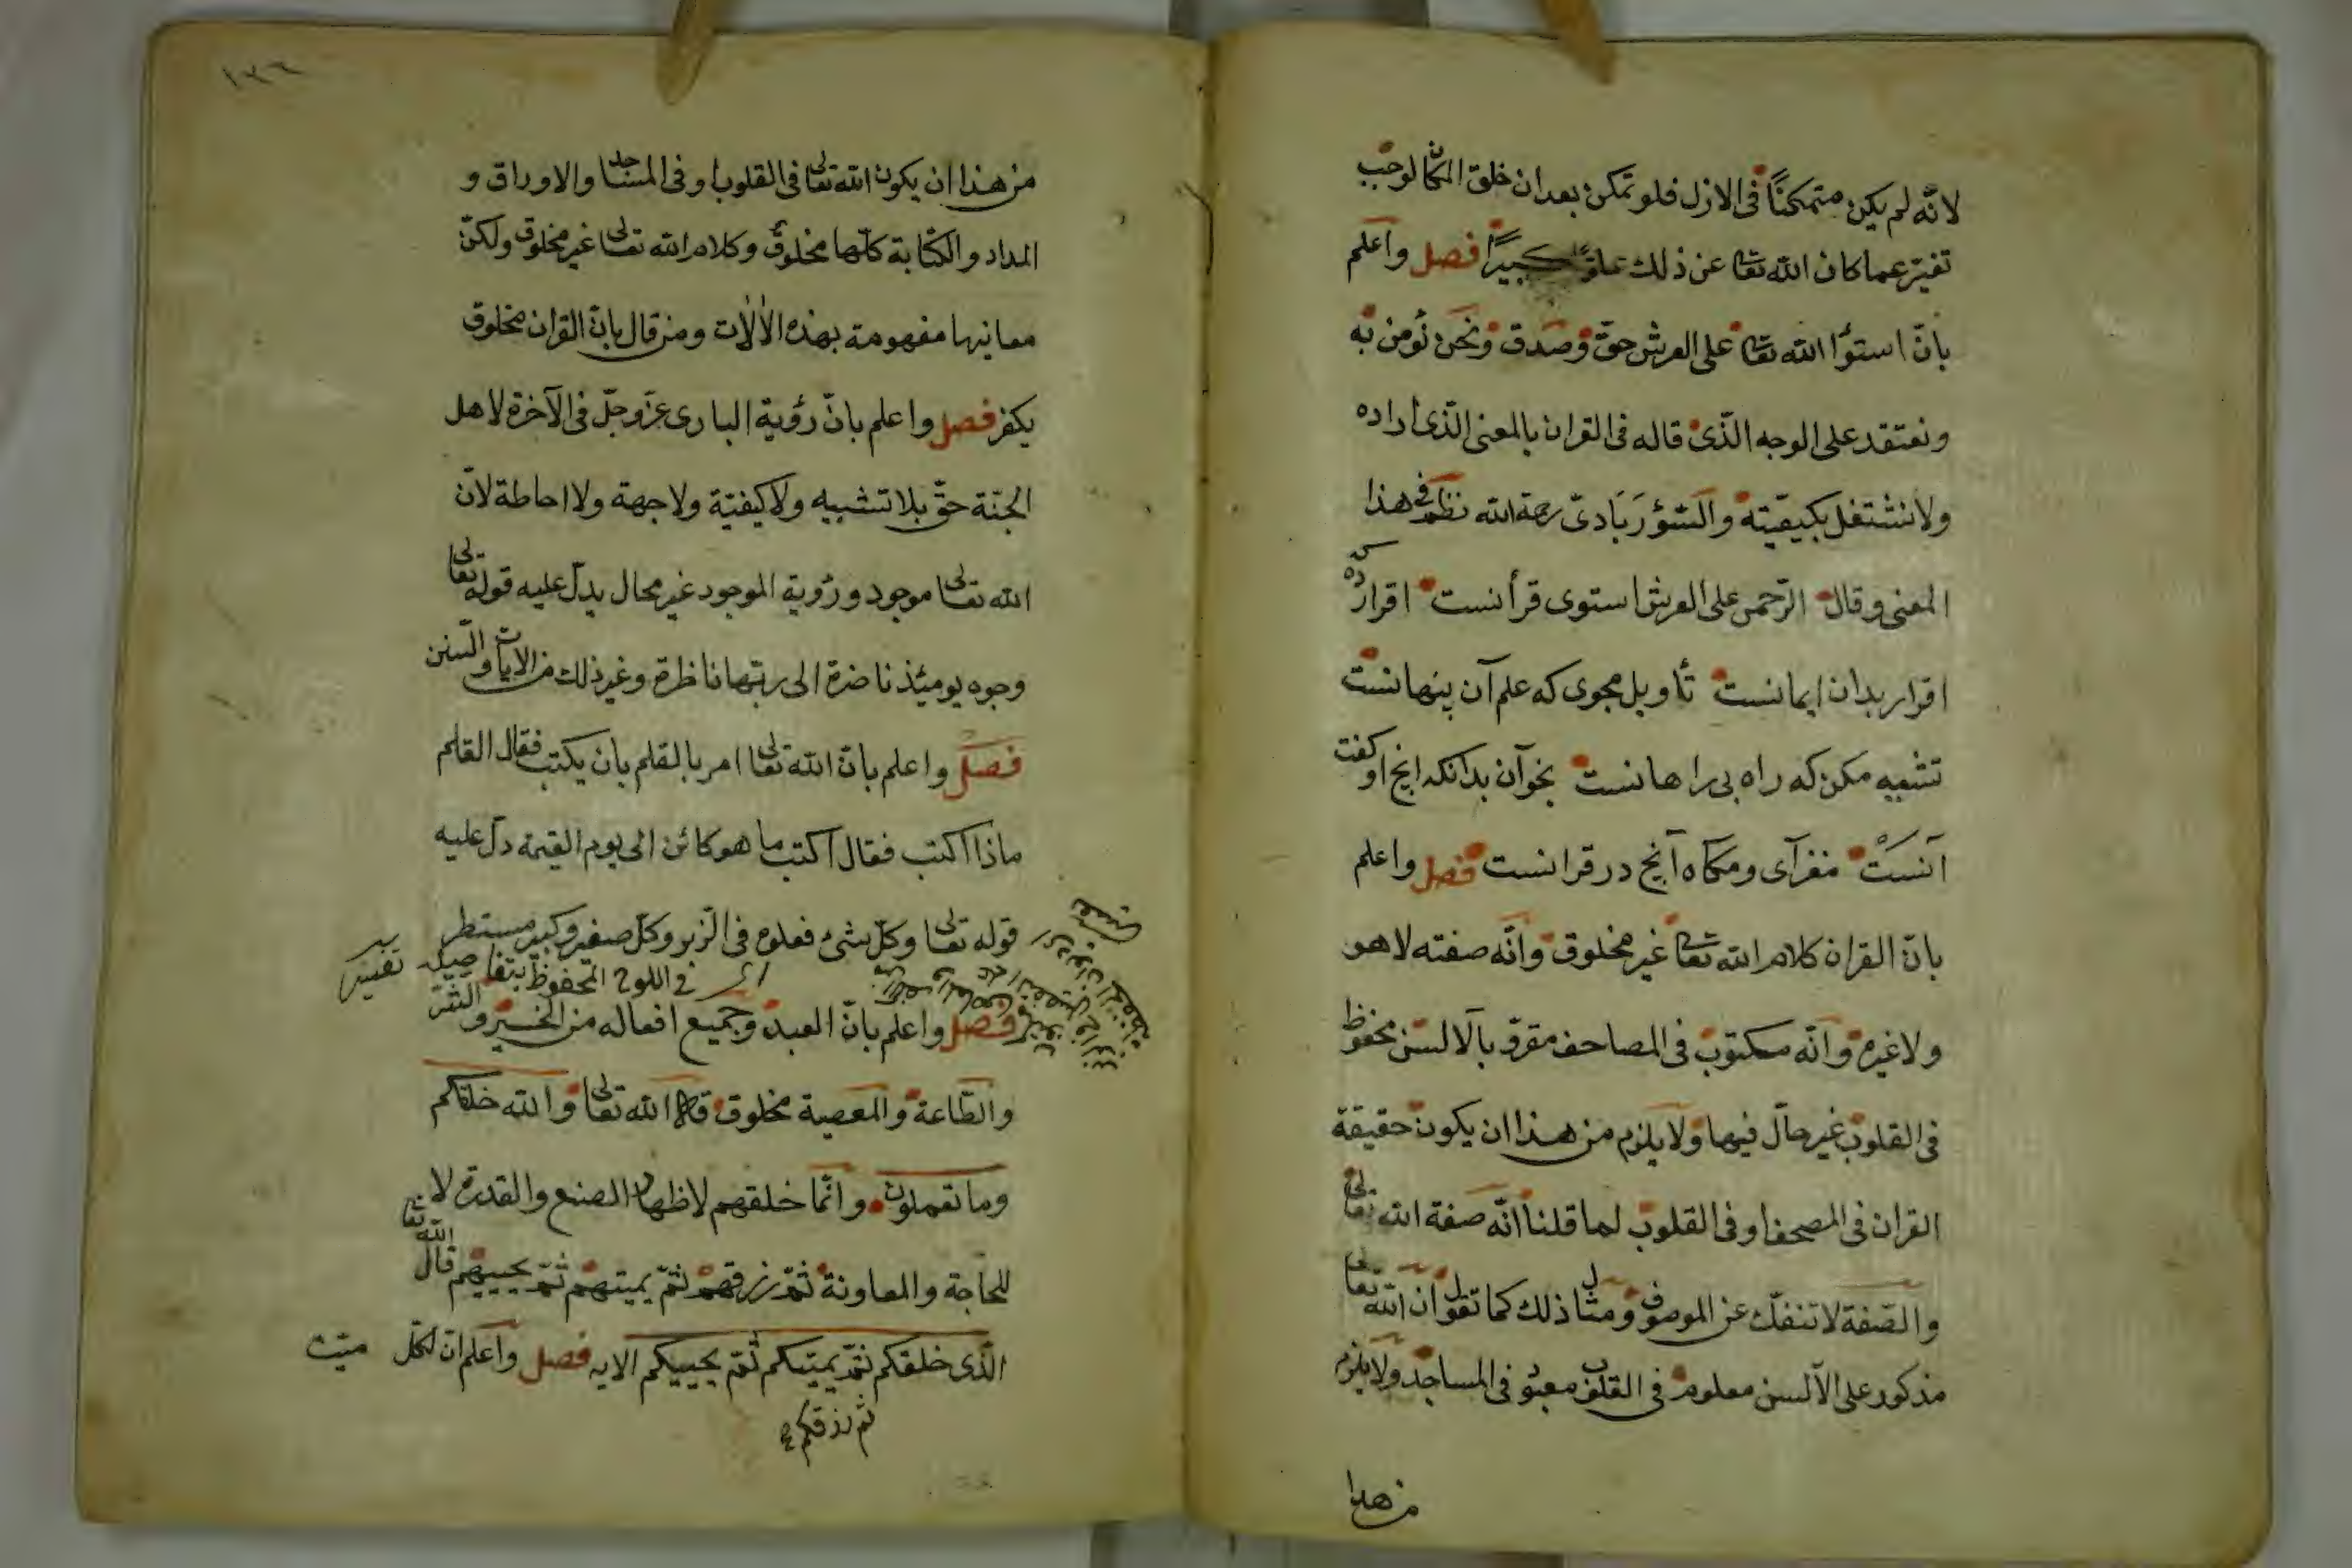 لانّه لم يكن متمكنًا فى الازل فلو تمكن بعد ان خلق المكان لوجب
تغيّر عما كان الله تعالى عن ذلك علوًّا كبيرًا فصل واعلم
بانّ استوا الله تعالى على العرش حقّ وصدق ونحن نؤمن به
ونعتقد على الوجه الذّى قاله فى القران بالمعنى الذّى اراده
ولا نشتغل بكيفيّته رحمة الله نظم فى هذا
المعنى وقال الرّحمن على العرش استوى قرأنست اقرار كرده
اقرار بدان ايمانست تأويل مجوى كه علم آن پنهانست
تشبيه مكن كه راه بى راهانست بخوان بدانكه انچ او گفت
آنست مفزآى ومكاه آنچ در قرانست فصل واعلم
بانّ القران كلام الله تعالى غير مخلوق وانّه صفته لا هو
ولا غيره وانّه مكتوب فى المصاحف مقروّ بالالسن محفوظ
فى القلوب غير حالّ فيها ولا يلزم من هذا ان يكون حقيقة
القران فى المصحف او فى القلوب لما قلنا انّه صفة الله تعالى
والصّفة لا تنفكّ عن الموصوف ومثال ذلك كما تقول ان الله تعالى
مذكور على الالسن معلوم فى القلوب معبو فى المساجد ولا يلزم
من هذا
١٣٦
من هذا ان يكون الله تعالى فى القلوب او فى المساجد والاوراق و
المداد والكتابة كلّها مخلوق وكلام الله تعالى غير مخلوق ولكنّ
معانيها مفهومة بهذه الالات ومن قال بانّ القران مخلوق
يكفر فصل واعلم بانّ رؤية البارى عزّ وجلّ فى الآخرة لاهل
الجنّة حقّ بلا تشبيه ولا كيفيّة ولا جهة ولا احاطة لانّ
الله تعالى موجود ورؤية الموجود غير محال يدلّ عليه قوله تعالى
وجوه يومئذ ناضرة الى ربّها ناظرة وغير ذلك من الايات والسّنن
فصل واعلم بانّ الله تعالى امر بالقلم بان يكتب فقال القلم
ماذا اكتب فقال اكتب ما هو كائن الى يوم القيمة دلّ عليه
قوله تعالى وكلّ شىء فعلوه فى الزّبر وكلّ صغير وكبير مستطر
اى فى اللوح المحفوظ بتفاصيله تفسير
فصل واعلم بانّ العبد وجميع افعاله من الخير والشّرّ
والطّاعة والمعصية مخلوق قال الله تعالى والله خلقكم
وما تعملون وانّما خلقهم لاظهار الصنع والقدرة لا
للحاجة والمعاونة ثمّ رزقهم ثمّ يميتهم ثمّ يحييهم قال الله تعا
الّذى خلقكم ثمّ يميتكم ثمّ يحييكم الايه فصل واعلم انّ لكلّ ميّت
ثم رزقكم